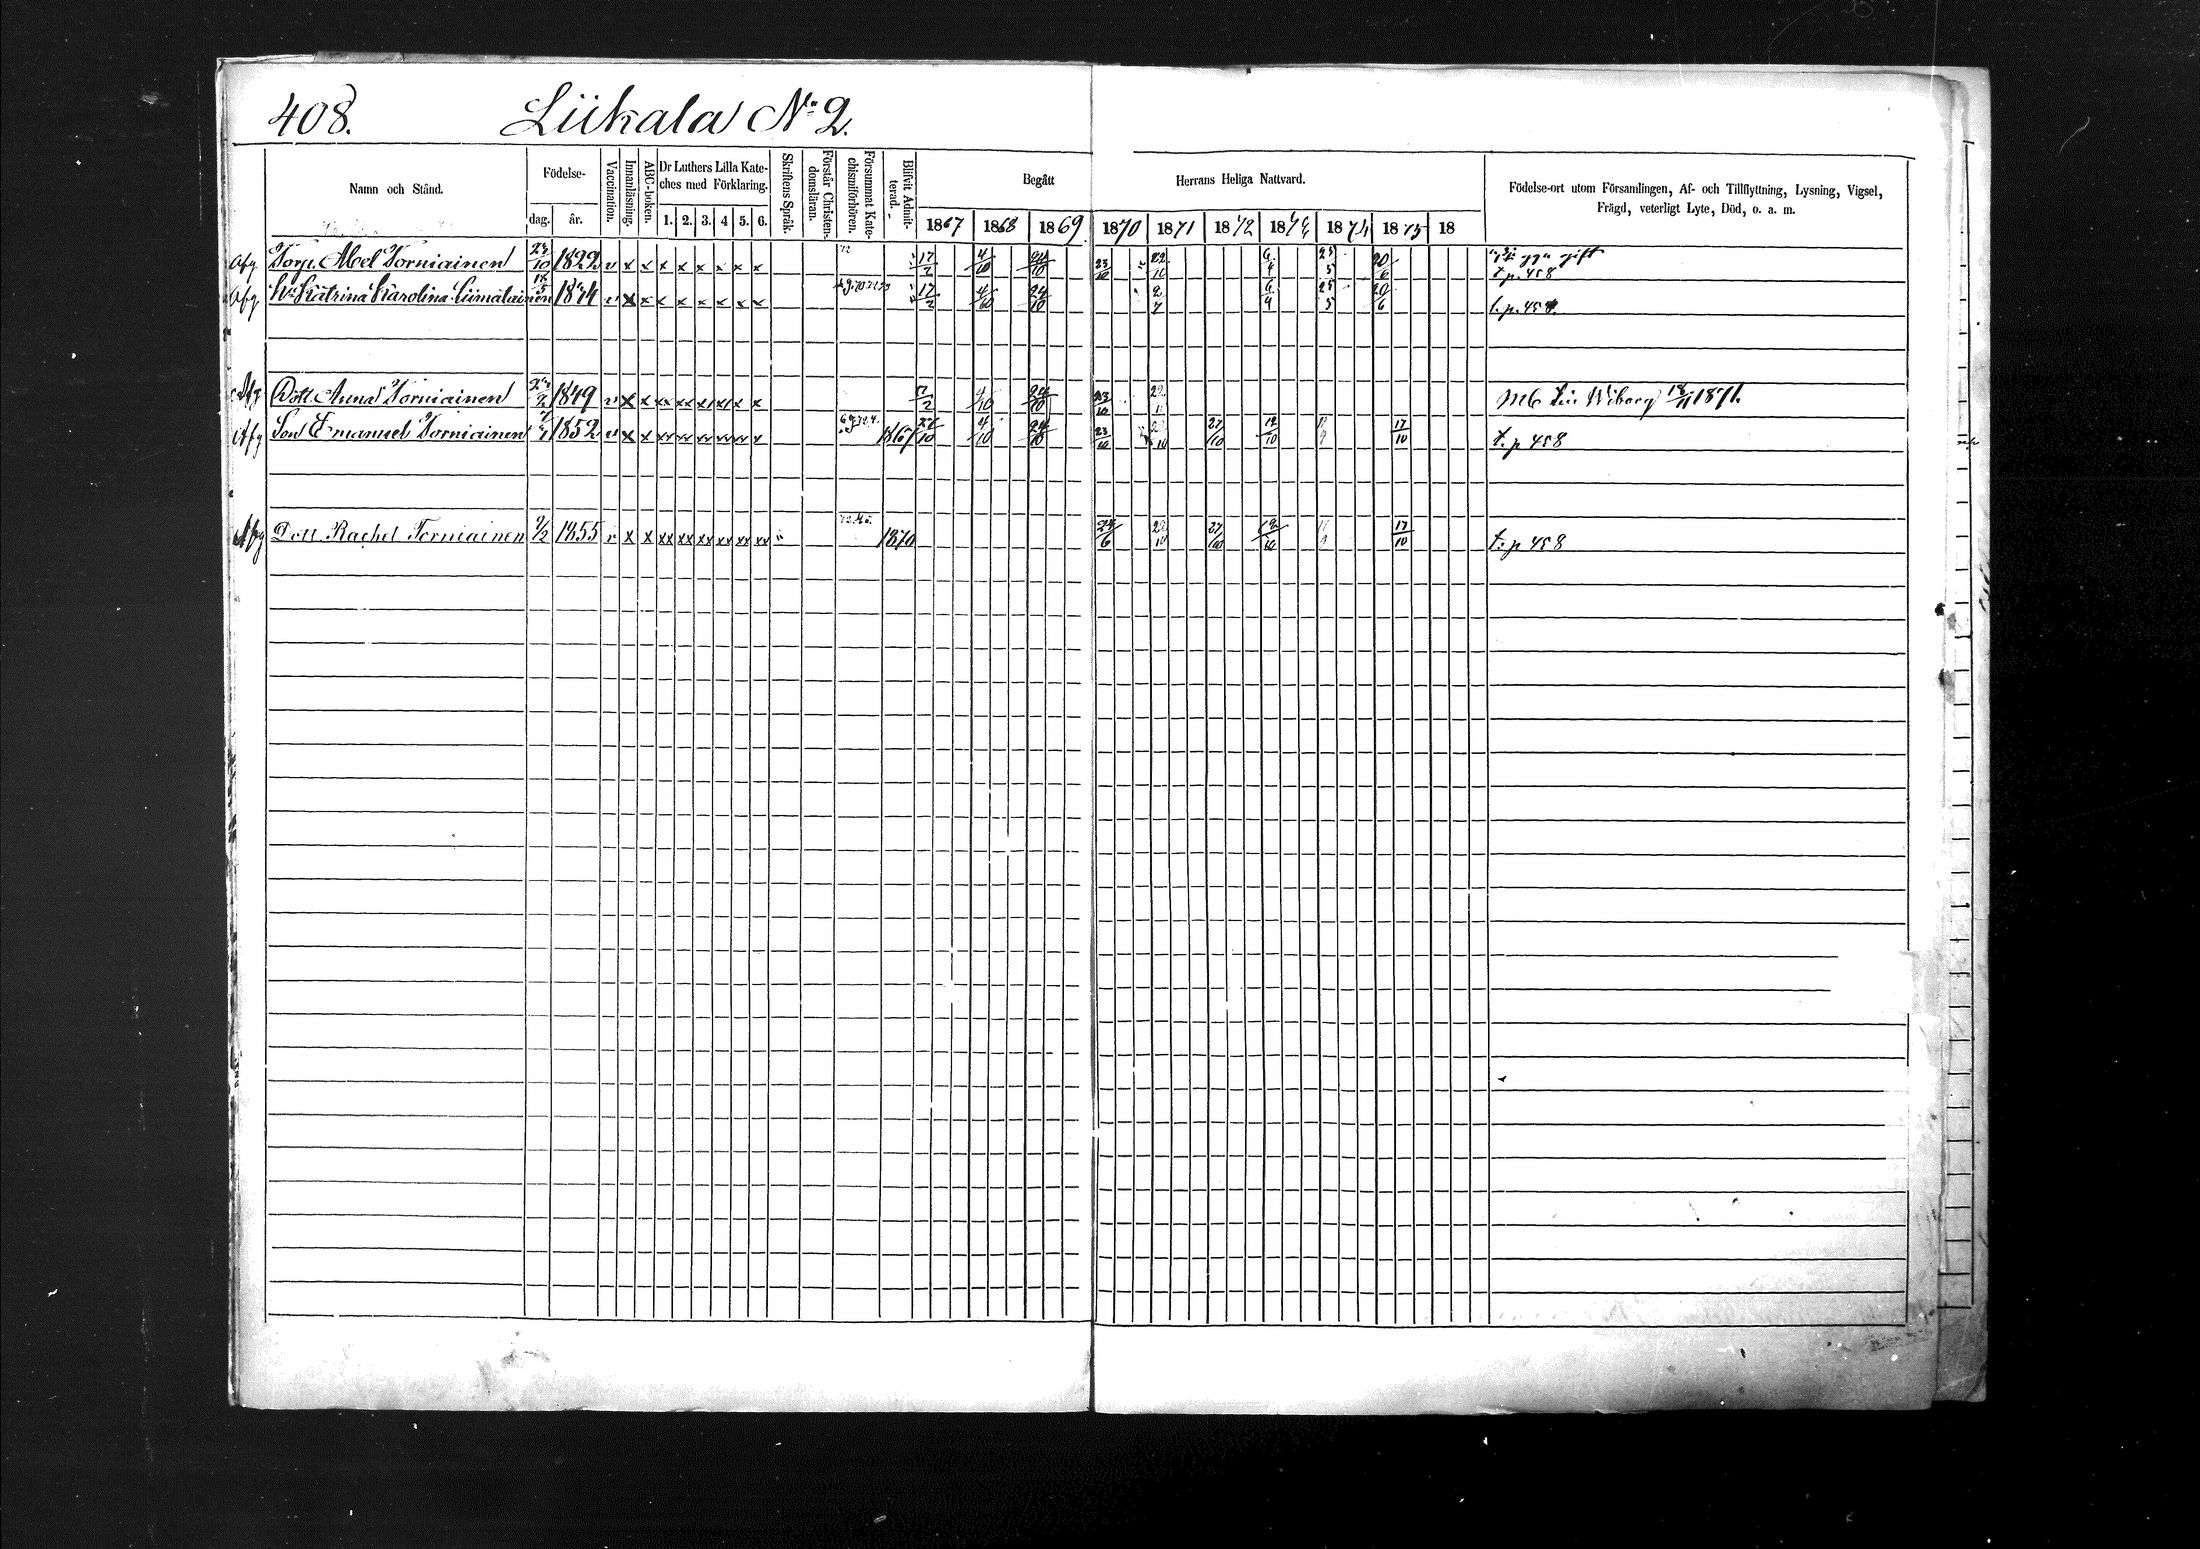 408. Liikala No 2.
Namn och Stånd.
Födelse-
dag. år.
Vaccination.
Innanläsning.
ABC-boken.
Dr Luthers Lilla Kate-
ches med Förklaring.
1. 2. 3. 4 5. 6.
Skriftens Språk.
Förstår Christen-
domsläran.
Försummat Kate-
chismiförhören.
Blifvit Admit-
terad.
Begått Herrans Heliga Nattvard.
1867 1868 1869 1870 1871 1872 1873 1874 1875 18
Födelse-ort utom Församlingen, Af- och Tillflyttning, Lysning, Vigsel,
Frägd, veterligt Lyte, Död, o. a. m.
Afg Torp. Abel Torniainen 23/10 1822 v x x x x x x x x 72 17/2 4/10 24/10 23/10 22/10 6/4 25/5 20/6 gift
t. p. 458
Afg Hu Katrina Karolina Liimatainen v x x x x x x x x 17/2 4/10 24/10 2/7 6/4 25/5 20/6 t. p. 458.
Afg Dott. Anna Torniainen 1849 v x x xx xx x x 4/10 24/10 23/10 MB till Wiborg 1871.
Afg Son Emanuel Torniainen 1852 v x x xx xx xx xx xx x 1867 4/10 24/10 23/10 27/10 12/10 17/10 t. p 458
Afg Dott Rachel Torniainen 9/2 1855 v x x xx xx xx xx xx xx 1870 24/6 22/10 27/10 12/10 17/10 t. p 458